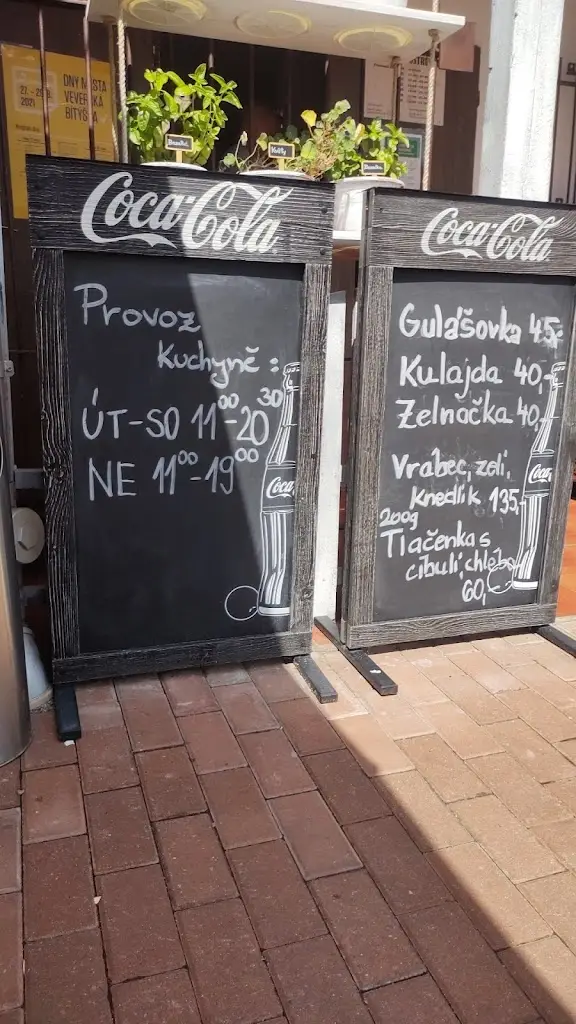 DNY MĚSTA
VEVERSKÁ
BÍTÝŠKA
2021
Coca-Cola
Provoz
Kuchyně :
ÚT-SO 11⁰⁰-20³⁰
NE 11⁰⁰-19⁰⁰
Coca
Coca-Cola
Gulášovka 45,-
Kulajda 40,-
Zelnačka 40,-
Vrabec, zelí,
knedlík 135,-
200g
Tlačenka s
cibulí, chleba
60,-
Coca